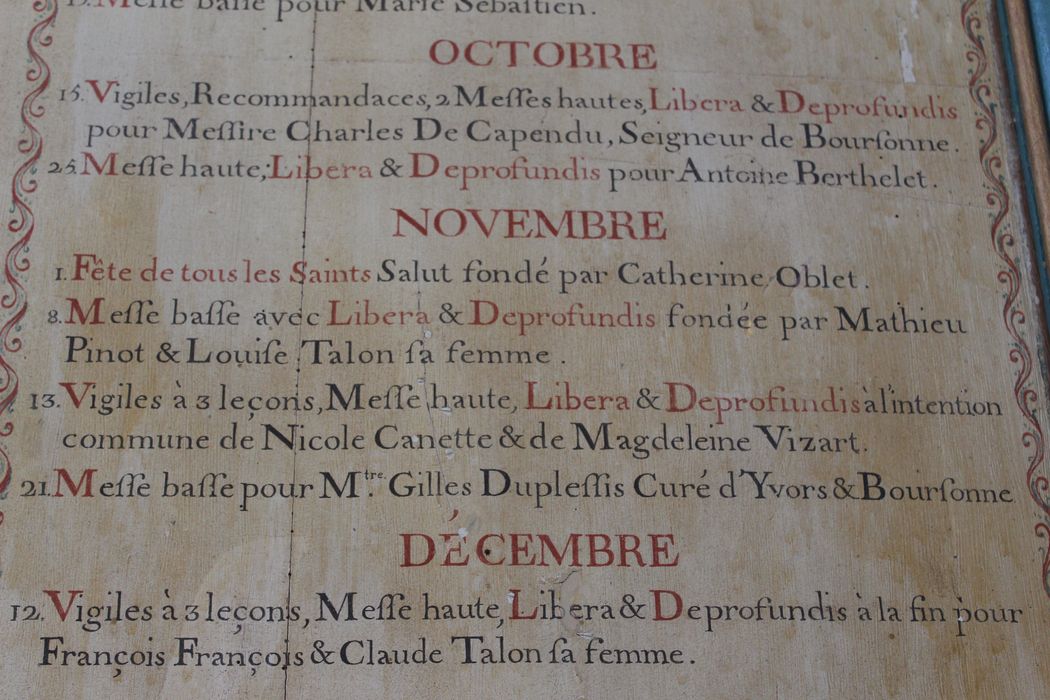 Meſſe baſſe pour Marie Sébaſtien.
OCTOBRE
15. Vigiles, Recommandaces, 2 Meſſes hautes, Libera & Deprofundis
pour Meſſire Charles De Capendu, Seigneur de Bourſonne.
25. Meſſe haute, Libera & Deprofundis pour Antoine Berthelet.
NOVEMBRE
1. Fête de tous les Saints Salut fondé par Catherine Oblet.
8. Meſſe baſſe avec Libera & Deprofundis fondée par Mathieu
Pinot & Louiſe Talon ſa femme.
13. Vigiles à 3 leçons, Meſſe haute, Libera & Deprofundis à l'intention
commune de Nicole Canette & de Magdeleine Vizart.
21. Meſſe baſſe pour M.tre Gilles Dupleſſis Curé d'Yvors & Bourſonne
DÉCEMBRE
12. Vigiles à 3 leçons, Meſſe haute, Libera & Deprofundis à la fin pour
François François & Claude Talon ſa femme.